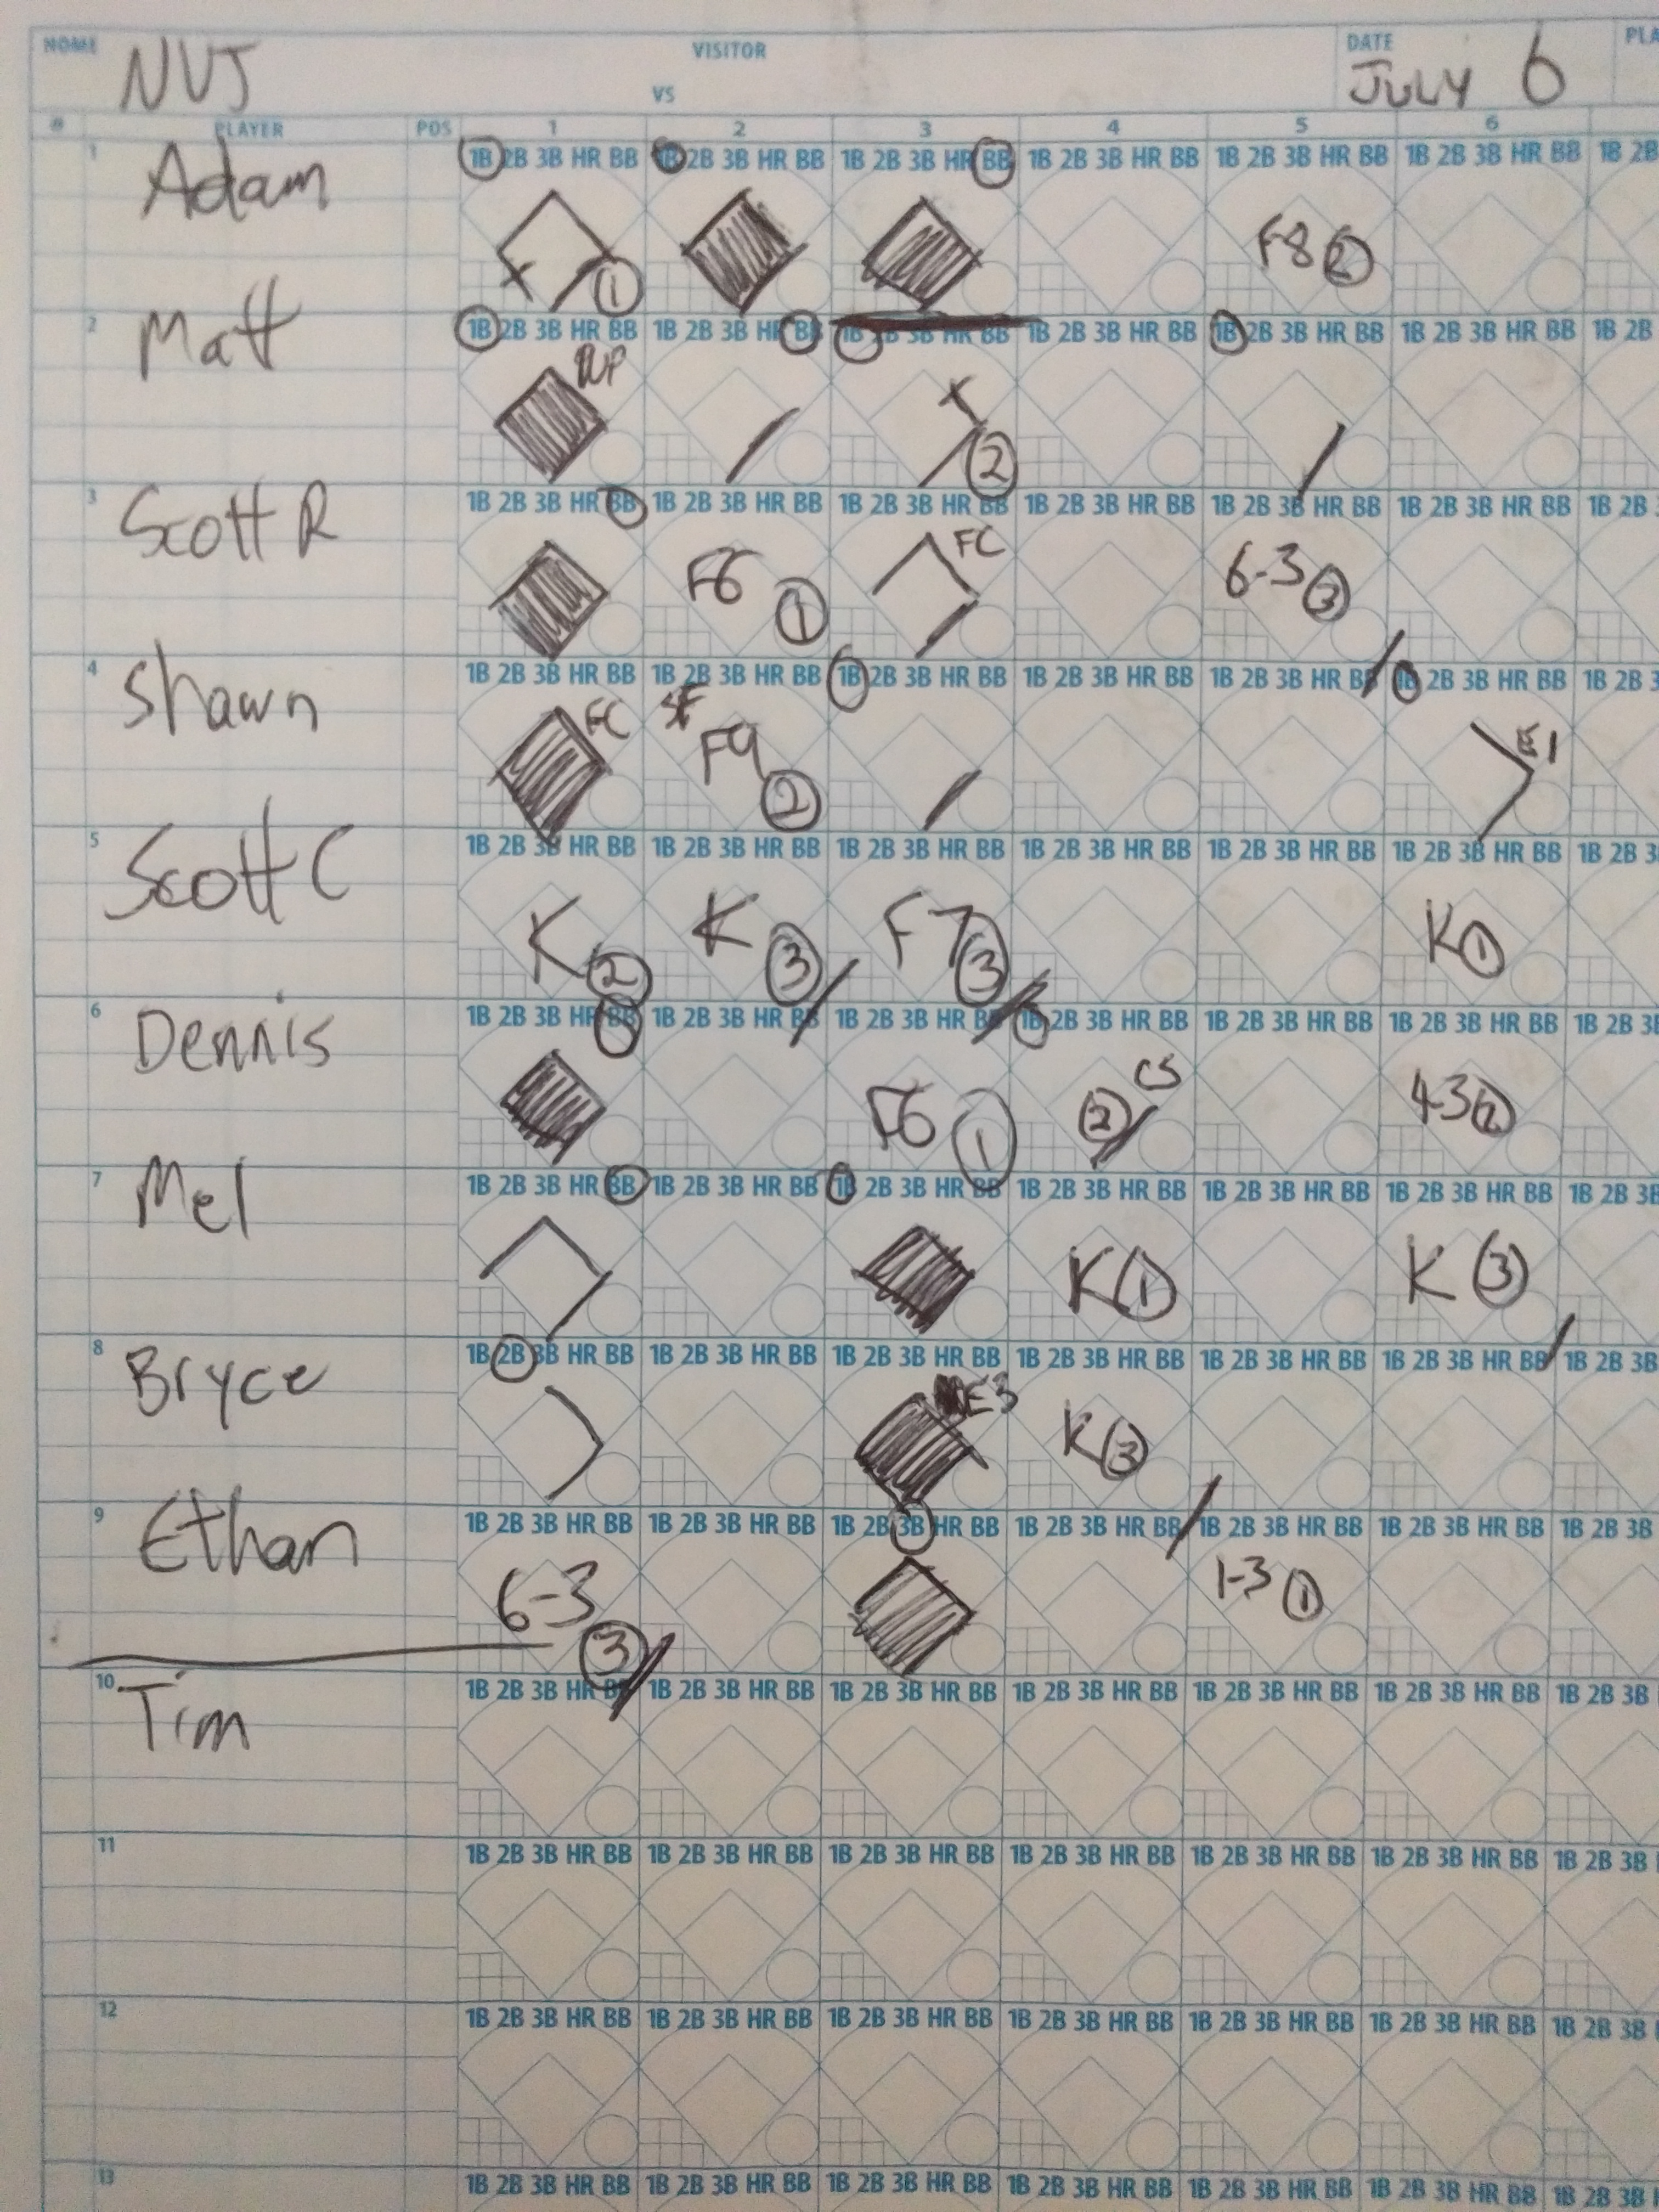 HOME NVJ VISITOR VS DATE JULY 6 PLA
# PLAYER POS 1 2 3 4 5 6
1 Adam 1B 2B 3B HR BB 1B 2B 3B HR BB 1B 2B 3B HR BB 1B 2B 3B HR BB 1B 2B 3B HR BB 1B 2B 3B HR BB 1B 2B
1 F8 2
2 Matt 1B 2B 3B HR BB 1B 2B 3B HR BB 1B 2B 3B HR BB 1B 2B 3B HR BB 1B 2B 3B HR BB 1B 2B 3B HR BB 1B 2B
2
3 Scott R 1B 2B 3B HR BB 1B 2B 3B HR BB 1B 2B 3B HR BB 1B 2B 3B HR BB 1B 2B 3B HR BB 1B 2B 3B HR BB 1B 2B
F6 1 FC 6-3 3
4 Shawn 1B 2B 3B HR BB 1B 2B 3B HR BB 1B 2B 3B HR BB 1B 2B 3B HR BB 1B 2B 3B HR BB 1B 2B 3B HR BB 1B 2B 3
FC SF F9 2 E1
5 Scott C 1B 2B 3B HR BB 1B 2B 3B HR BB 1B 2B 3B HR BB 1B 2B 3B HR BB 1B 2B 3B HR BB 1B 2B 3B HR BB 1B 2B 3
K 2 K 3 F7 3 K 1
6 Dennis 1B 2B 3B HR BB 1B 2B 3B HR BB 1B 2B 3B HR BB 1B 2B 3B HR BB 1B 2B 3B HR BB 1B 2B 3B HR BB 1B 2B 3B
F6 1 2 CS 4-3 2
7 Mel 1B 2B 3B HR BB 1B 2B 3B HR BB 1B 2B 3B HR BB 1B 2B 3B HR BB 1B 2B 3B HR BB 1B 2B 3B HR BB 1B 2B 3B
K 1 K 3
8 Bryce 1B 2B 3B HR BB 1B 2B 3B HR BB 1B 2B 3B HR BB 1B 2B 3B HR BB 1B 2B 3B HR BB 1B 2B 3B HR BB 1B 2B 3B
E3 K 3
9 Ethan 1B 2B 3B HR BB 1B 2B 3B HR BB 1B 2B 3B HR BB 1B 2B 3B HR BB 1B 2B 3B HR BB 1B 2B 3B HR BB 1B 2B 3B
6-3 3 1-3 1
10 Tim 1B 2B 3B HR BB 1B 2B 3B HR BB 1B 2B 3B HR BB 1B 2B 3B HR BB 1B 2B 3B HR BB 1B 2B 3B HR BB 1B 2B 3B
11 1B 2B 3B HR BB 1B 2B 3B HR BB 1B 2B 3B HR BB 1B 2B 3B HR BB 1B 2B 3B HR BB 1B 2B 3B HR BB 1B 2B 3B
12 1B 2B 3B HR BB 1B 2B 3B HR BB 1B 2B 3B HR BB 1B 2B 3B HR BB 1B 2B 3B HR BB 1B 2B 3B HR BB 1B 2B 3B
13 1B 2B 3B HR BB 1B 2B 3B HR BB 1B 2B 3B HR BB 1B 2B 3B HR BB 1B 2B 3B HR BB 1B 2B 3B HR BB 1B 2B 3B